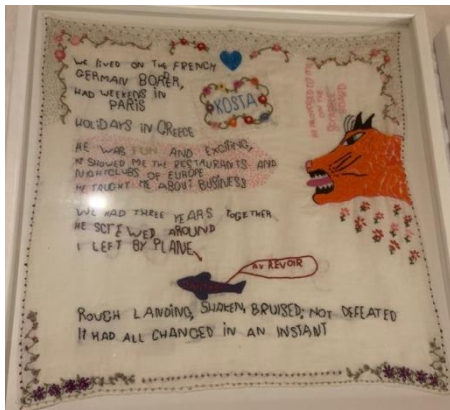 WE LIVED ON THE FRENCH
GERMAN BORER,
HAD WEEKENDS IN
PARIS
KOSTA
HOLIDAYS IN GREECE
HE WAS FUN AND EXCITING,
HE SHOWED ME THE RESTAURANTS AND
NIGHTCLUBS OF EUROPE
HE TAUGHT ME ABOUT BUSINESS
WE HAD THREE YEARS TOGETHER
HE SCREWED AROUND
I LEFT BY PLANE,
AU REVOIR
ROUGH LANDING, SHAKEN, BRUISED; NOT DEFEATED
IT HAD ALL CHANGED IN AN INSTANT